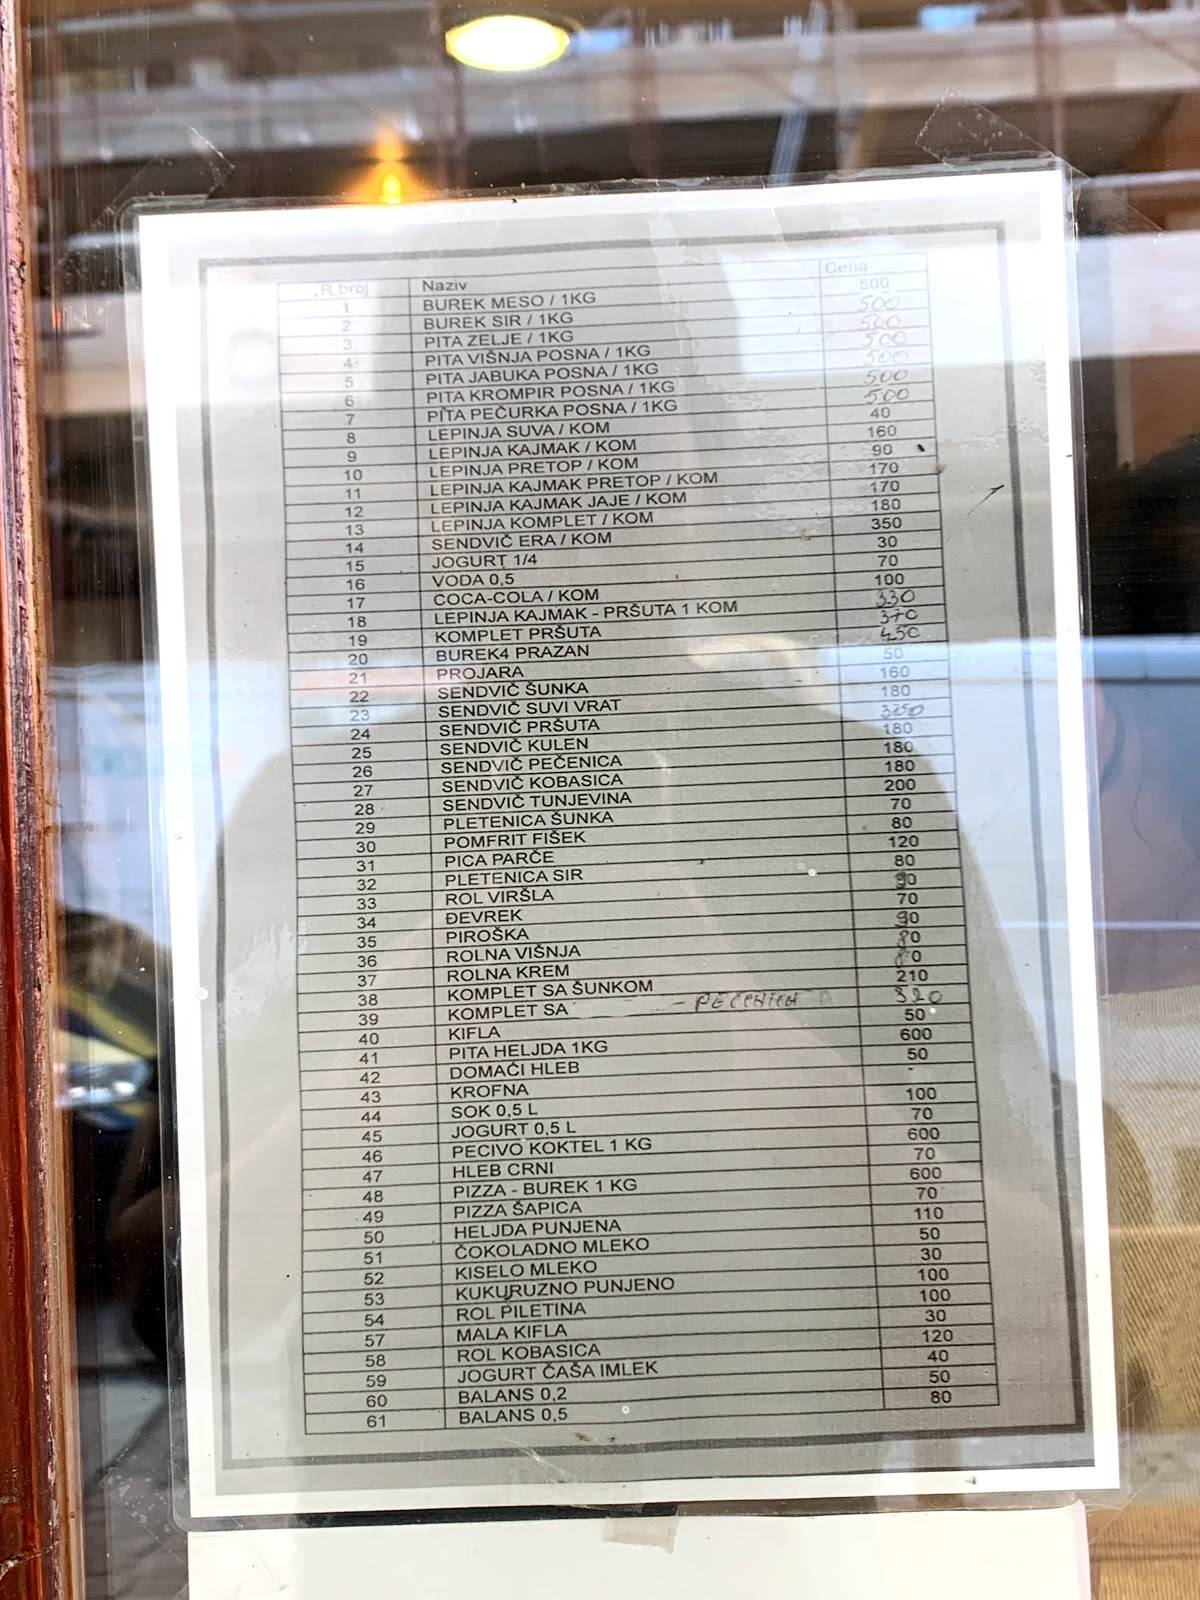 R.broj Naziv Cena
1 BUREK MESO / 1KG 500
2 BUREK SIR / 1KG 500
3 PITA ZELJE / 1KG 500
4 PITA VIŠNJA POSNA / 1KG 500
5 PITA JABUKA POSNA / 1KG 500
6 PITA KROMPIR POSNA / 1KG 500
7 PITA PEČURKA POSNA / 1KG 500
8 LEPINJA SUVA / KOM 40
9 LEPINJA KAJMAK / KOM 160
10 LEPINJA PRETOP / KOM 90
11 LEPINJA KAJMAK PRETOP / KOM 170
12 LEPINJA KAJMAK JAJE / KOM 170
13 LEPINJA KOMPLET / KOM 180
14 SENDVIČ ERA / KOM 350
15 JOGURT 1/4 30
16 VODA 0,5 70
17 COCA-COLA / KOM 100
18 LEPINJA KAJMAK - PRŠUTA 1 KOM 330
19 KOMPLET PRŠUTA 370
20 BUREK4 PRAZAN 450
21 PROJARA 50
22 SENDVIČ ŠUNKA 160
23 SENDVIČ SUVI VRAT 180
24 SENDVIČ PRŠUTA
25 SENDVIČ KULEN 180
26 SENDVIČ PEČENICA 180
27 SENDVIČ KOBASICA 180
28 SENDVIČ TUNJEVINA 200
29 PLETENICA ŠUNKA 70
30 POMFRIT FIŠEK 80
31 PICA PARČE 120
32 PLETENICA SIR 80
33 ROL VIRŠLA 90
34 ĐEVREK 70
35 PIROŠKA 90
36 ROLNA VIŠNJA 80
37 ROLNA KREM 80
38 KOMPLET SA ŠUNKOM 210
39 KOMPLET SA - 320
40 KIFLA 50
41 PITA HELJDA 1KG 600
42 DOMAĆI HLEB 50
43 KROFNA -
44 SOK 0,5 L 100
45 JOGURT 0,5 L 70
46 PECIVO KOKTEL 1 KG 600
47 HLEB CRNI 70
48 PIZZA - BUREK 1 KG 600
49 PIZZA ŠAPICA 70
50 HELJDA PUNJENA 110
51 ČOKOLADNO MLEKO 50
52 KISELO MLEKO 30
53 KUKURUZNO PUNJENO 100
54 ROL PILETINA 100
57 MALA KIFLA 30
58 ROL KOBASICA 120
59 JOGURT ČAŠA IMLEK 40
60 BALANS 0,2 50
61 BALANS 0,5 80